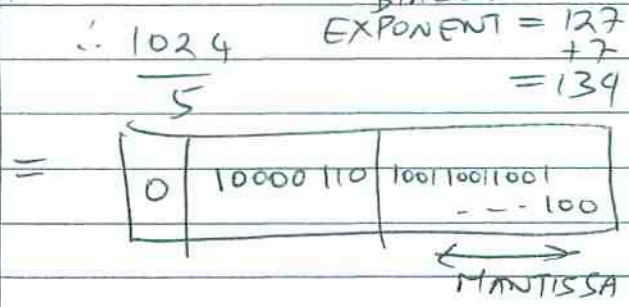 ∴ 1024/5
EXPONENT = 127
+7
= 134
= 0 | 10000110 | 100110011001
--- 100
MANTISSA